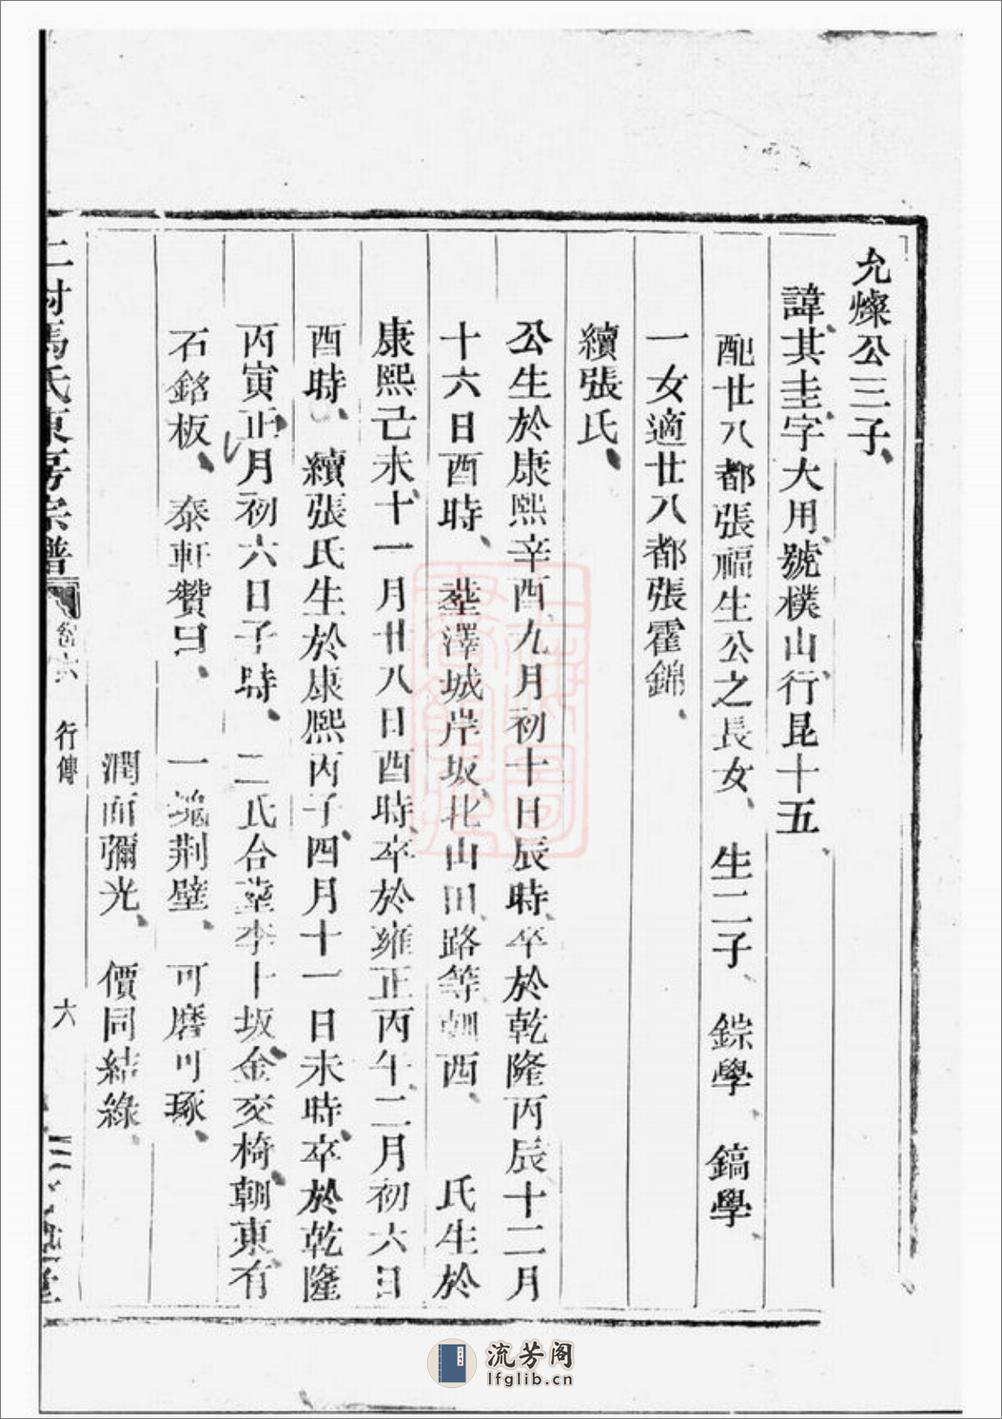 允燦公三子、
諱其圭字大用、號樸山行昆十五、
配廿八都張福生公之長女、生二子、錝學、鎬學
一女適廿八都張霍錦、
續張氏、
公生於康熙辛酉、九月初十日辰時、卒於乾隆丙辰十二月
十六日酉時、塟澤城岸坂、北山田、路等朝西、氏生於
康熙己未、十一月廿八日酉時、卒於雍正丙午、二月初六日
酉時、續張氏生於康熙丙子、四月十一日未時、卒於乾隆
丙寅正月初六日子時、二氏合塟李十坂金交椅、朝東、有
石銘板、泰軒贊曰、一塊荆璧、可磨可琢、
潤而彌光、價同結綠、
馮氏東房宗譜 卷六 行傳 六 堂
流芳阁
lfglib.cn